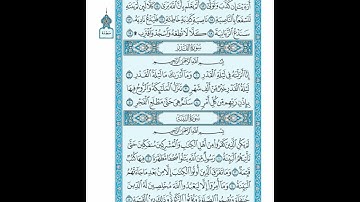 أَرَءَيْتَ إِن كَذَّبَ وَتَوَلَّىٰٓ ١٣ أَلَمْ يَعْلَم بِأَنَّ ٱللَّهَ يَرَىٰ ١٤ كَلَّا لَئِن لَّمْ يَنتَهِ
لَنَسْفَعًۢا بِٱلنَّاصِيَةِ ١٥ نَاصِيَةٍ كَٰذِبَةٍ خَاطِئَةٍ ١٦ فَلْيَدْعُ نَادِيَهُۥ ١٧
سَنَدْعُ ٱلزَّبَانِيَةَ ١٨ كَلَّا لَا تُطِعْهُ وَٱسْجُدْ وَٱقْتَرِب ۩ ١٩
سُورَةُ ٱلْقَدْرِ
بِسْمِ ٱللَّهِ ٱلرَّحْمَٰنِ ٱلرَّحِيمِ
إِنَّآ أَنزَلْنَٰهُ فِى لَيْلَةِ ٱلْقَدْرِ ١ وَمَآ أَدْرَىٰكَ مَا لَيْلَةُ ٱلْقَدْرِ ٢
لَيْلَةُ ٱلْقَدْرِ خَيْرٌ مِّنْ أَلْفِ شَهْرٍ ٣ تَنَزَّلُ ٱلْمَلَٰٓئِكَةُ وَٱلرُّوحُ فِيهَا
بِإِذْنِ رَبِّهِم مِّن كُلِّ أَمْرٍ ٤ سَلَٰمٌ هِىَ حَتَّىٰ مَطْلَعِ ٱلْفَجْرِ ٥
سُورَةُ ٱلْبَيِّنَةِ
بِسْمِ ٱللَّهِ ٱلرَّحْمَٰنِ ٱلرَّحِيمِ
لَمْ يَكُنِ ٱلَّذِينَ كَفَرُوا۟ مِنْ أَهْلِ ٱلْكِتَٰبِ وَٱلْمُشْرِكِينَ مُنفَكِّينَ حَتَّىٰ
تَأْتِيَهُمُ ٱلْبَيِّنَةُ ١ رَسُولٌ مِّنَ ٱللَّهِ يَتْلُوا۟ صُحُفًا مُّطَهَّرَةً ٢ فِيهَا
كُتُبٌ قَيِّمَةٌ ٣ وَمَا تَفَرَّقَ ٱلَّذِينَ أُوتُوا۟ ٱلْكِتَٰبَ إِلَّا مِنۢ بَعْدِ مَا جَآءَتْهُمُ
ٱلْبَيِّنَةُ ٤ وَمَآ أُمِرُوٓا۟ إِلَّا لِيَعْبُدُوا۟ ٱللَّهَ مُخْلِصِينَ لَهُ ٱلدِّينَ
حُنَفَآءَ وَيُقِيمُوا۟ ٱلصَّلَوٰةَ وَيُؤْتُوا۟ ٱلزَّكَوٰةَ وَذَٰلِكَ دِينُ ٱلْقَيِّمَةِ ٥